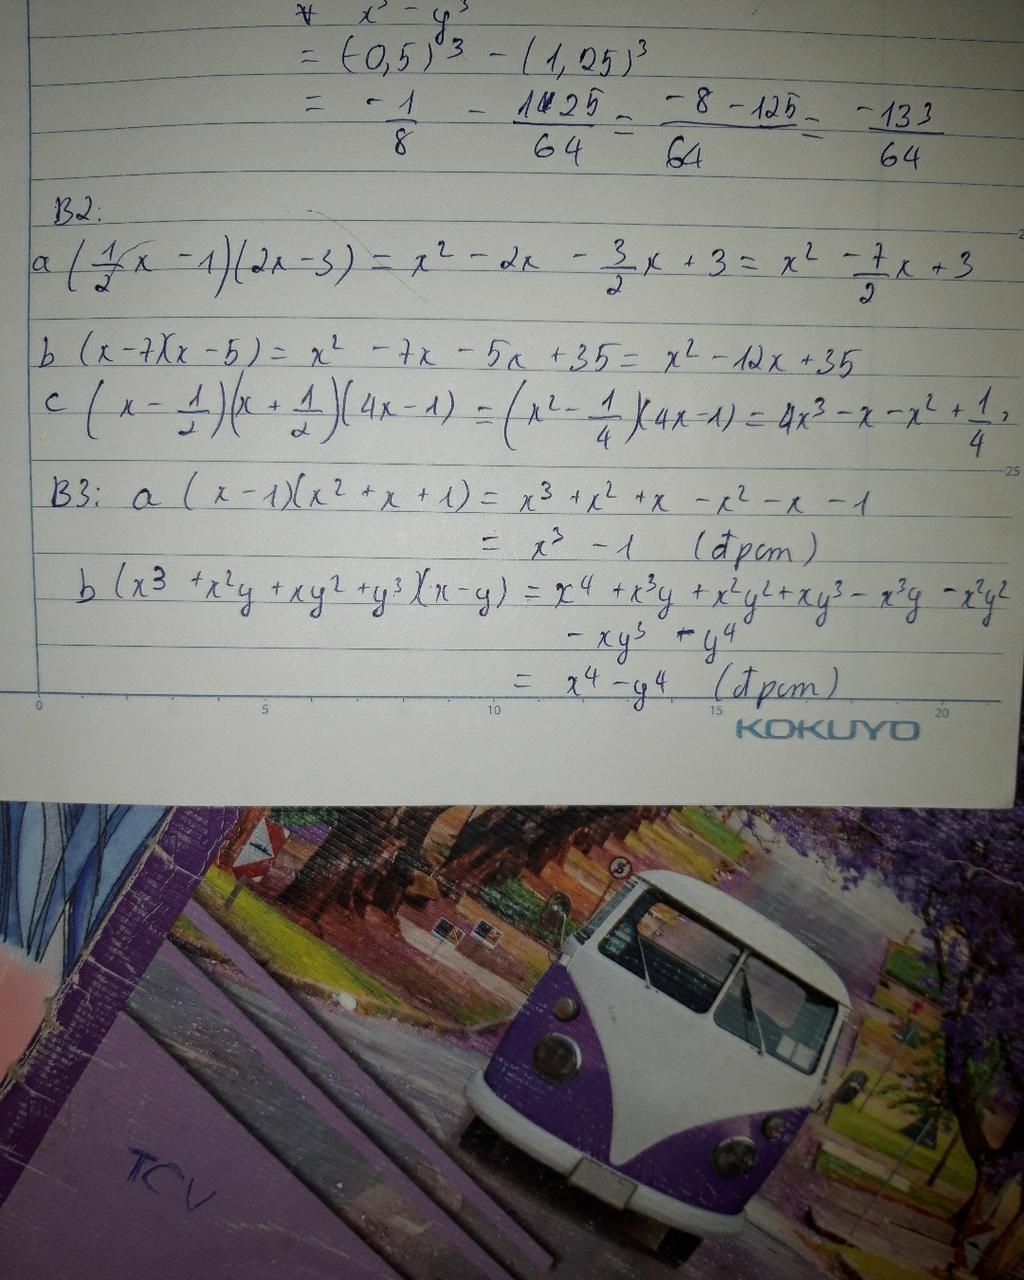 * x³ - y³
= (-0,5)³ - (1,25)³
= -1/8 - 125/64 = -8 - 125/64 = -133/64
B2:
a (1/2x - 1)(2x - 3) = x² - 2x - 3/2x + 3 = x² - 7/2x + 3
b (x - 7)(x - 5) = x² - 7x - 5x + 35 = x² - 12x + 35
c (x - 1/2)(x + 1/2)(4x - 1) = (x² - 1/4)(4x - 1) = 4x³ - x - x² + 1/4,
25
B3: a (x - 1)(x² + x + 1) = x³ + x² + x - x² - x - 1
= x³ - 1 (đpcm)
b (x3 + x²y + xy² + y³)(x - y) = x⁴ + x³y + x²y² + xy³ - x³y - x²y²
- xy³ - y⁴
= x⁴ - y⁴ (đpcm)
0 5 10 15 20
KOKUYO
TCV